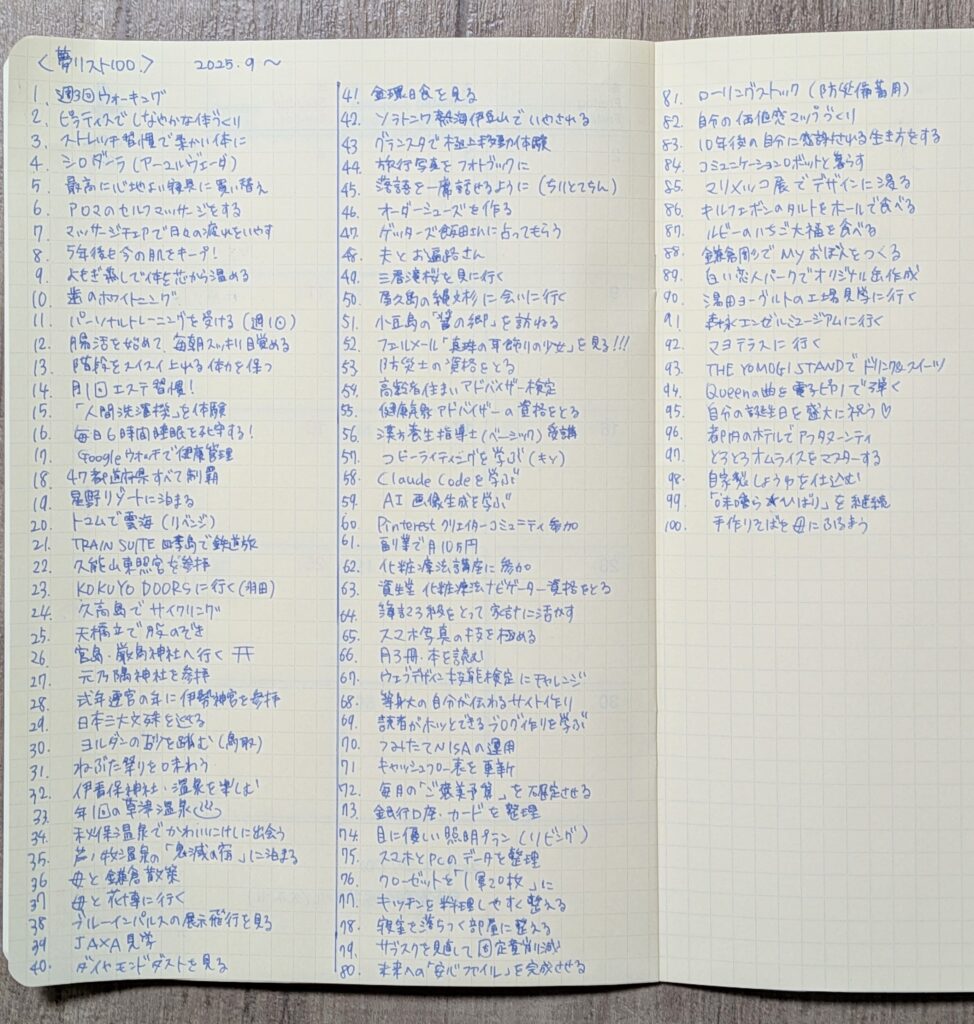 <夢リスト100.> 2025.9～
1. 週3回ウォーキング
2. ピラティスでしなやかな体づくり
3. ストレッチ習慣で柔かい体に
4. シロダーラ (アーユルヴェーダ)
5. 最高に心地よい寝具に買い替え
6. アロマのセルフマッサージをする
7. マッサージチェアで日々の疲れをいやす
8. 5年後も今の肌をキープ!
9. よもぎ蒸しで体を芯から温める
10. 歯のホワイトニング
11. パーソナルトレーニングを受ける (週1回)
12. 腸活を始めて、毎朝スッキリ目覚める
13. 階段をスイスイ上れる体力を保つ
14. 月1回エステ習慣!
15. 「人間洗濯機」を体験
16. 毎日6時間睡眠を死守する!
17. Googleウォッチで健康管理
18. 47都道府県すべて制覇
19. 星野リゾートに泊まる
20. トマムで雲海 (リベンジ)
21. TRAIN SUITE 四季島で鉄道旅
22. 久能山東照宮を参拝
23. KOKUYO DOORSに行く(羽田)
24. 久高島でサイクリング
25. 天橋立で股のぞき
26. 宮島・厳島神社へ行く ⛩
27. 元乃隅神社を参拝
28. 式年遷宮の年に伊勢神宮を参拝
29. 日本三大文殊を巡る
30. ヨルダンの砂を踏む (鳥取)
31. ねぶた祭りを味わう
32. 伊香保神社・温泉を楽しむ
33. 年1回の草津温泉♨
34. 秋保温泉でかわいいこけしに出会う
35. 芦ノ牧温泉の「鬼滅の宿」に泊まる
36. 母と鎌倉散策
37. 母と花博に行く
38. ブルーインパルスの展示飛行を見る
39. JAXA見学
40. ダイヤモンドダストを見る
41. 金環日食を見る
42. ソラトニワ 熱海伊豆山でいやされる
43. グランスタで極上移動体験
44. 旅行写真をフォトブックに
45. 落語を一席話せるように (ちりとてちん)
46. オーダーシューズを作る
47. ゲッターズ飯田さんに占ってもらう
48. 夫とお遍路さん
49. 三春滝桜を見に行く
50. 屋久島の縄文杉に会いに行く
51. 小豆島の「醤の郷」を訪ねる
52. フェルメール「真珠の耳飾りの少女」を見る!!!
53. 防災士の資格をとる
54. 高齢者住まいアドバイザー検定
55. 健康長寿アドバイザーの資格をとる
56. 漢方養生指導士(ベーシック)受講
57. コピーライティングを学ぶ (キャ)
58. Claude Codeを学ぶ
59. AI 画像生成を学ぶ
60. Pinterest クリエイターコミュニティ参加
61. 副業で月10万円
62. 化粧療法講座に参加
63. 資生堂 化粧療法ナビゲーター資格をとる
64. 簿記3級をとって家計に活かす
65. スマホ写真の技を極める
66. 月3冊・本を読む
67. ウェブデザイン技能検定にチャレンジ
68. 等身大の自分が伝わるサイト作り
69. 読者がホッとできるブログ作りを学ぶ
70. つみたてNISAの運用
71. キャッシュフロー表を更新
72. 毎月の「ご褒美予算」を確定させる
73. 銀行口座・カードを整理
74. 目に優しい照明プラン (リビング)
75. スマホとPCのデータを整理
76. クローゼットを「1軍20枚」に
77. キッチンを料理しやすく整える
78. 寝室を落ちつく部屋に整える
79. サブスクを見直して固定費削減
80. 未来への「安心ファイル」を完成させる
81. ローリングストック (防災備蓄用)
82. 自分の価値感マップづくり
83. 10年後の自分に感謝される生き方をする
84. コミュニケーションロボットと暮らす
85. マリメッコ展でデザインに浸る
86. キルフェボンのタルトをホールで食べる
87. ルビーのいちご大福を食べる
88. 鎌倉彫でMyおぼんをつくる
89. 白い恋人パークでオリジナル缶作成
90. 湯田ヨーグルトの工場見学に行く
91. 森永エンゼルミュージアムに行く
92. マヨテラスに行く
93. THE YOMOGI STANDでドリンク&スイーツ
94. Queenの曲を電子ピアノで弾く
95. 自分の誕生日を盛大に祝う♡
96. 都内のホテルでアフタヌーンティ
97. とろとろオムライスをマスターする
98. 自家製しょうゆを仕込む
99. 「味噌ら★ひばり」を継続
100. 手作りそばを母にふるまう